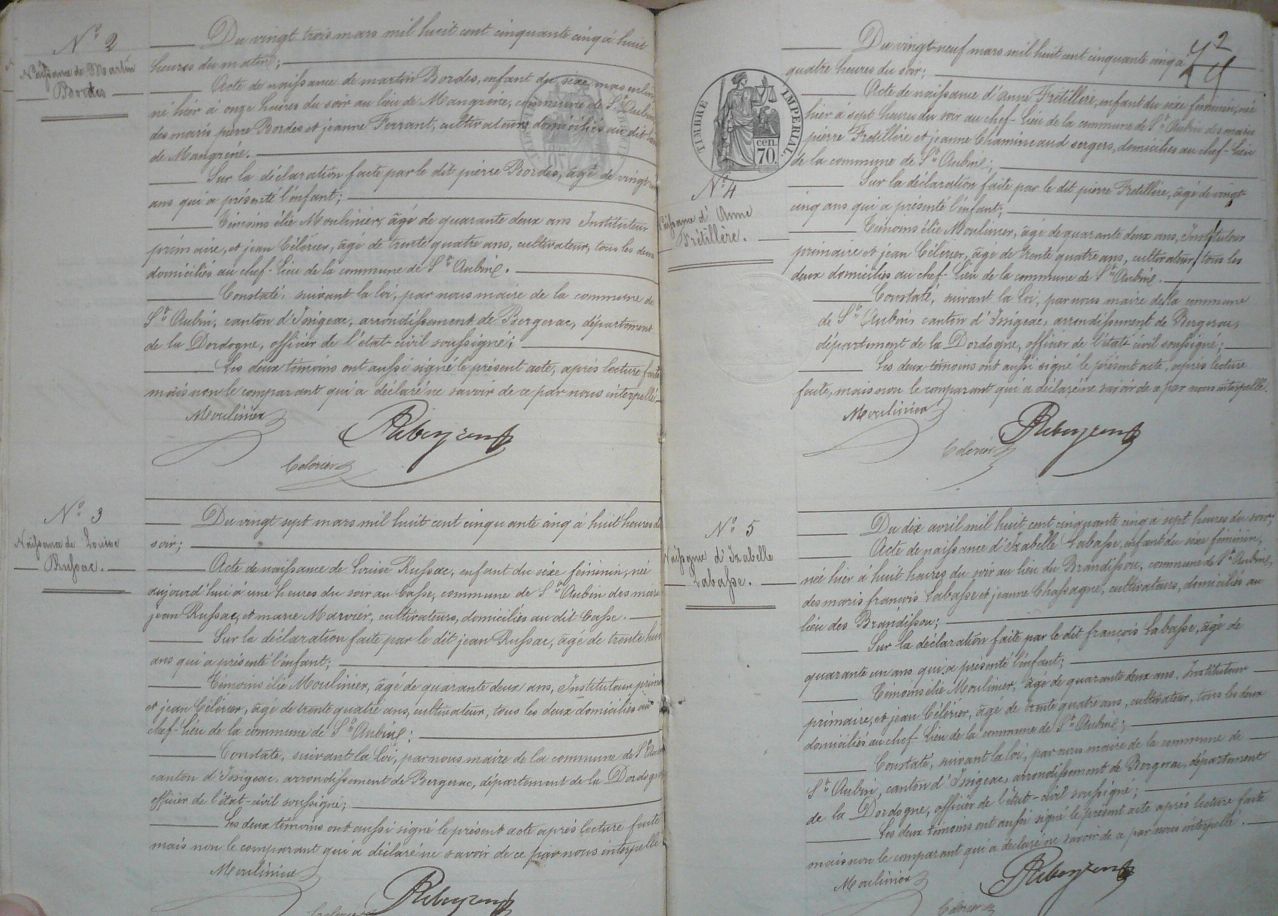 N° 2
Naissance de Martin
Bordes
Du vingt trois mars mil huit cent cinquante cinq à huit
heures du matin;
Acte de naissance de martin Bordes, enfant du sexe masculin
né hier à onze heures du soir au lieu de Mangrène, commune de St Aubin
des mariés pierre Bordes et jeanne Ferrant, cultivateurs domiciliés au dit lieu
de Mangrène.
Sur la déclaration faite par le dit pierre Bordes, âgé de vingt
ans qui a présenté l'enfant;
Témoins élie Moulinier, âgé de quarante deux ans Instituteur
primaire, et jean Célerier, âgé de trente quatre ans, cultivateur, tous les deux
domiciliés au chef-lieu de la commune de St Aubin.
Constaté, suivant la loi, par nous maire de la commune de
St Aubin, canton d'Issigeac, arrondissement de Bergerac, département
de la Dordogne, officier de l'état civil soussigné;
Les deux témoins ont aussi signé le présent acte, après lecture faite
mais non le comparant qui a déclaré ne savoir de ce par nous interpellé.
Moulinier
Celerier
N° 3
Naissance de Louise
Russac.
Du vingt sept mars mil huit cent cinquante cinq à huit heures du
soir;
Acte de naissance de Louise Russac, enfant du sexe féminin, né
aujourd'hui à une heures du soir au Casse, commune de St Aubin des mariés
jean Russac, et marie Marvier, cultivateurs, domiciliés au dit Casse.
Sur la déclaration faite par le dit jean Russac, âgé de trente huit
ans qui a présenté l'enfant;
Témoins élie Moulinier, âgé de quarante deux ans, Instituteur prim
et jean Célerier, âgé de trente quatre ans, cultivateur, tous les deux domiciliés au
chef-lieu de la commune de St Aubin;
Constaté, suivant la Loi, par nous maire de la commune de St Aubin
canton d'Issigeac, arrondissement de Bergerac, département de la Dordogne
officier de l'état-civil soussigné;
Les deux témoins ont aussi signé le présent acte après lecture faite
mais non le comparant qui a déclaré ne savoir de ce par nous interpellé
Moulinier
Celerier
2
TIMBRE IMPERIAL
70 cen.
N° 4
Naissance d'Anne
Frétillère.
Du vingt-neuf mars mil huit cent cinquante cinq à
quatre heures du soir;
Acte de naissance d'anne Frétillère, enfant du sexe féminin, née
hier à sept heures du soir au chef-lieu de la commune de St Aubin des mariés
pierre Frétillère et jeanne Chamineaud sergers, domiciliés au chef-lieu
de la commune de St Aubin;
Sur la déclaration faite par le dit pierre Frétillère, âgé de vingt
cinq ans qui a présenté l'enfant;
Témoins élie Moulinier, âgé de quarante deux ans, Instituteur
primaire et jean Célerier, âgé de trente quatre ans, cultivateur, tous les
deux domiciliés au chef-lieu de la commune de St Aubin.
Constaté, suivant la loi, par nous maire de la commune
de St Aubin, canton d'Issigeac, arrondissement de Bergerac,
département de la Dordogne, officier de l'état civil soussigné;
Les deux témoins ont aussi signé le présent acte, après lecture
faite, mais non le comparant qui a déclaré ne savoir de ce par nous interpellé.
Moulinier
Celerier
N° 5
Naissance d'Izabelle
Labasse.
Du dix avril mil huit cent cinquante cinq à sept heures du soir;
Acte de naissance d'Izabelle Labasse, enfant du sexe féminin,
née hier à huit heures du soir au lieu du Brandissou, commune de St Aubin,
des mariés françois Labasse et jeanne Chassagne, cultivateurs, domiciliés au
lieu des Brandissou;
Sur la déclaration faite par le dit françois Labasse, âgé de
quarante un ans qui a présenté l'enfant;
Témoins élie Moulinier, âgé de quarante deux ans, Instituteur
primaire, et jean Célerier, âgé de trente quatre ans, cultivateur, tous les deux
domiciliés au chef-lieu de la commune de St Aubin;
Constaté, suivant la loi, par nous maire de la commune de
St Aubin, canton d'Issigeac, arrondissement de Bergerac, département
de la Dordogne, officier de l'état-civil soussigné;
Les deux témoins ont aussi signé le présent acte après lecture faite
mais non le comparant qui a déclaré ne savoir de ce par nous interpellé.
Moulinier
Celerier